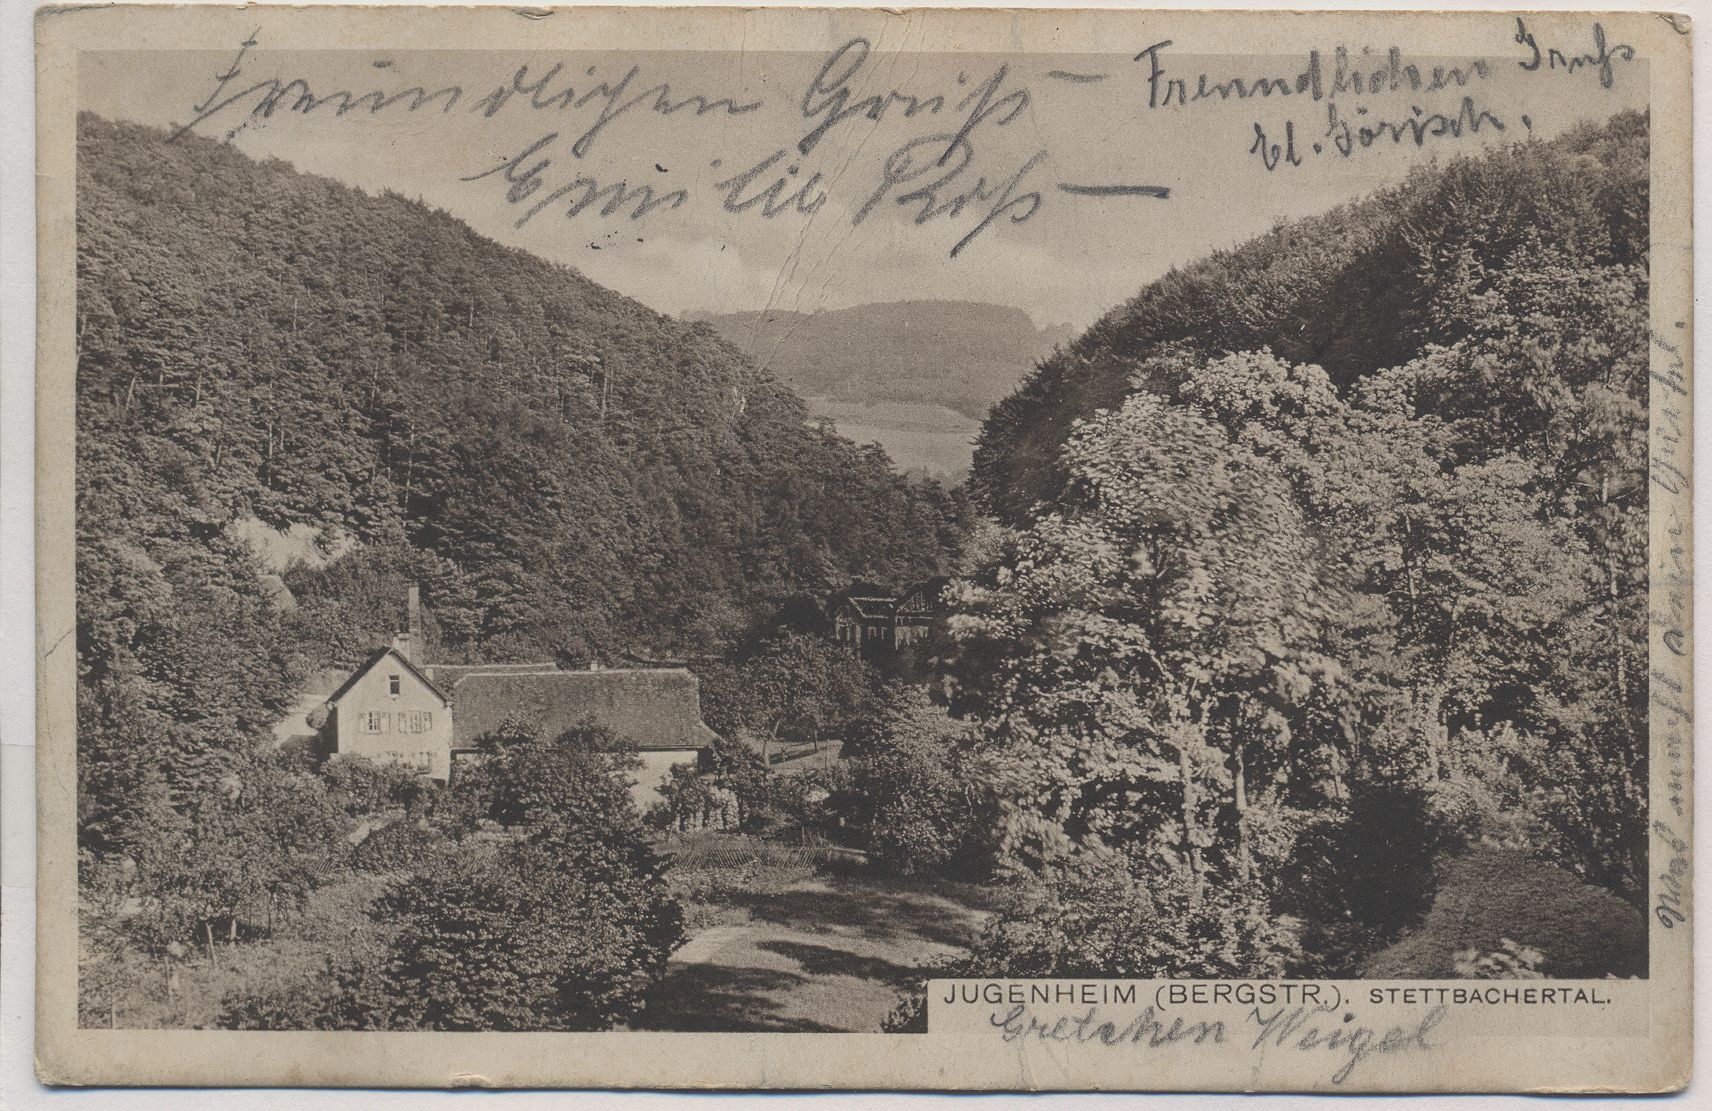 Freundlichen Gruß
Emilie Roß
Freundlichen Gruß
El. Görisch.
JUGENHEIM (BERGSTR.). STETTBACHERTAL.
Gretchen Weigel